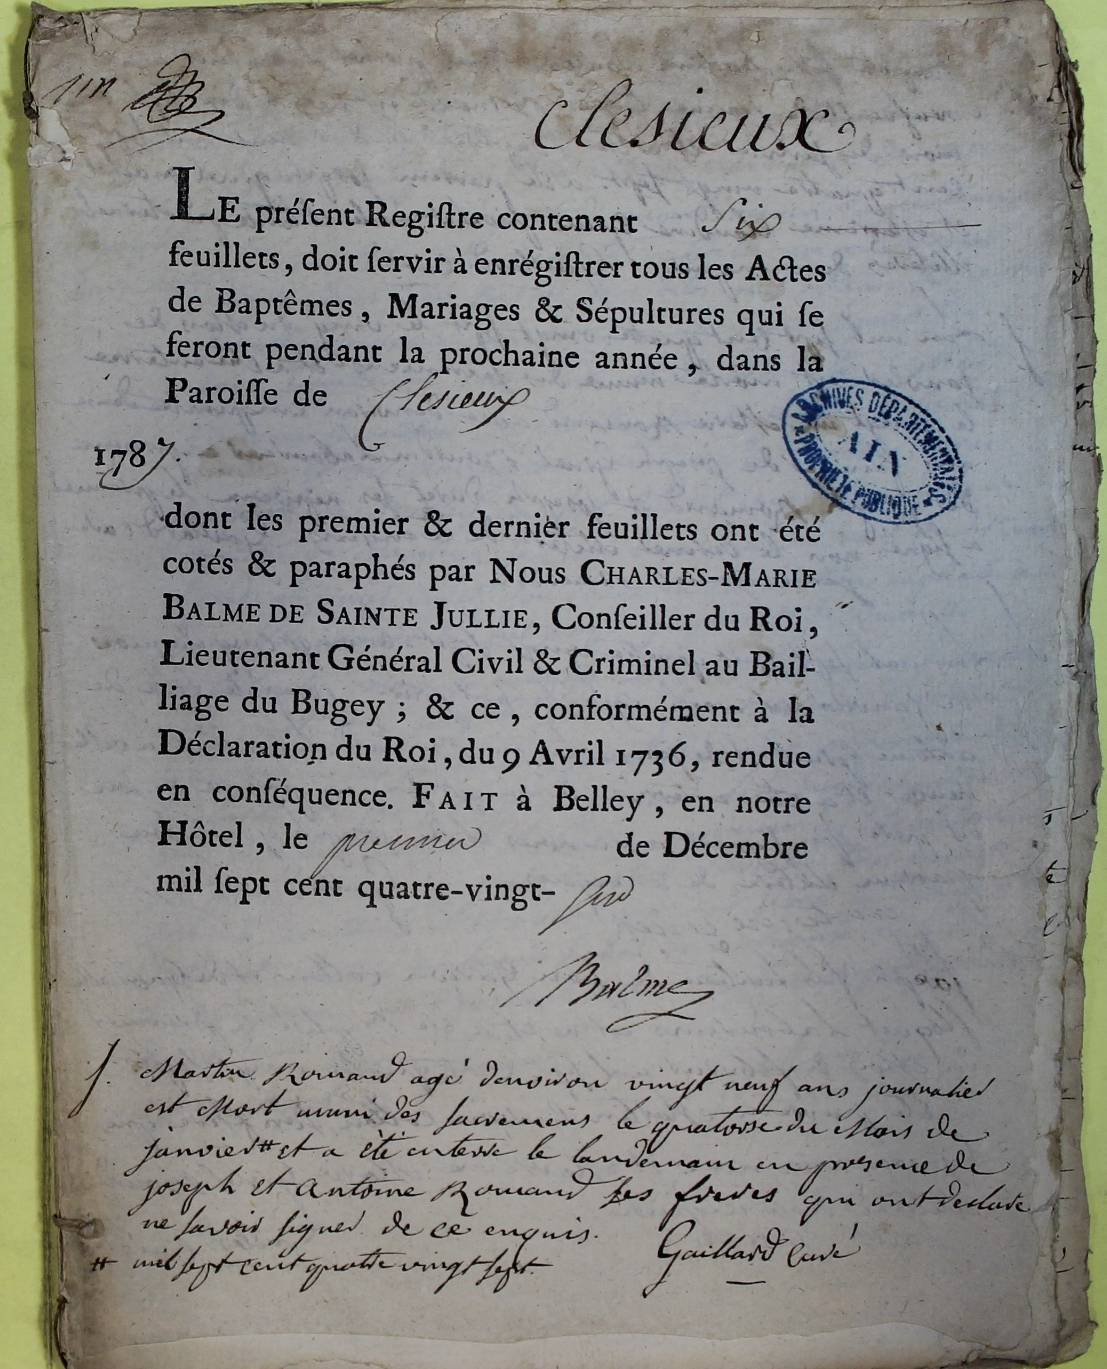 Clesieux
LE préſent Regiſtre contenant Six
feuillets, doit ſervir à enrégiſtrer tous les Actes
de Baptêmes, Mariages & Sépultures qui ſe
feront pendant la prochaine année, dans la
Paroiſſe de Clesieux
1787.
ARCHIVES DÉPARTEMENTALES
AIN
PROPRIÉTÉ PUBLIQUE
dont les premier & dernier feuillets ont été
cotés & paraphés par Nous CHARLES-MARIE
BALME DE SAINTE JULLIE, Conſeiller du Roi,
Lieutenant Général Civil & Criminel au Bail-
liage du Bugey ; & ce, conformément à la
Déclaration du Roi, du 9 Avril 1736, rendue
en conſéquence. FAIT à Belley, en notre
Hôtel, le premier de Décembre
mil ſept cent quatre-vingt-
Balme
Martin Romand agé denviron vingt neuf ans journalier
est Mort muni des sacremens le quatorse du Mois de
janvier # et a été enterré le landemain en presence de
joseph et Antoine Romand ses freres qui ont declaré
ne savoir signer de ce enquis. Gaillard curé
# mil sept cent quatre vingt sept.